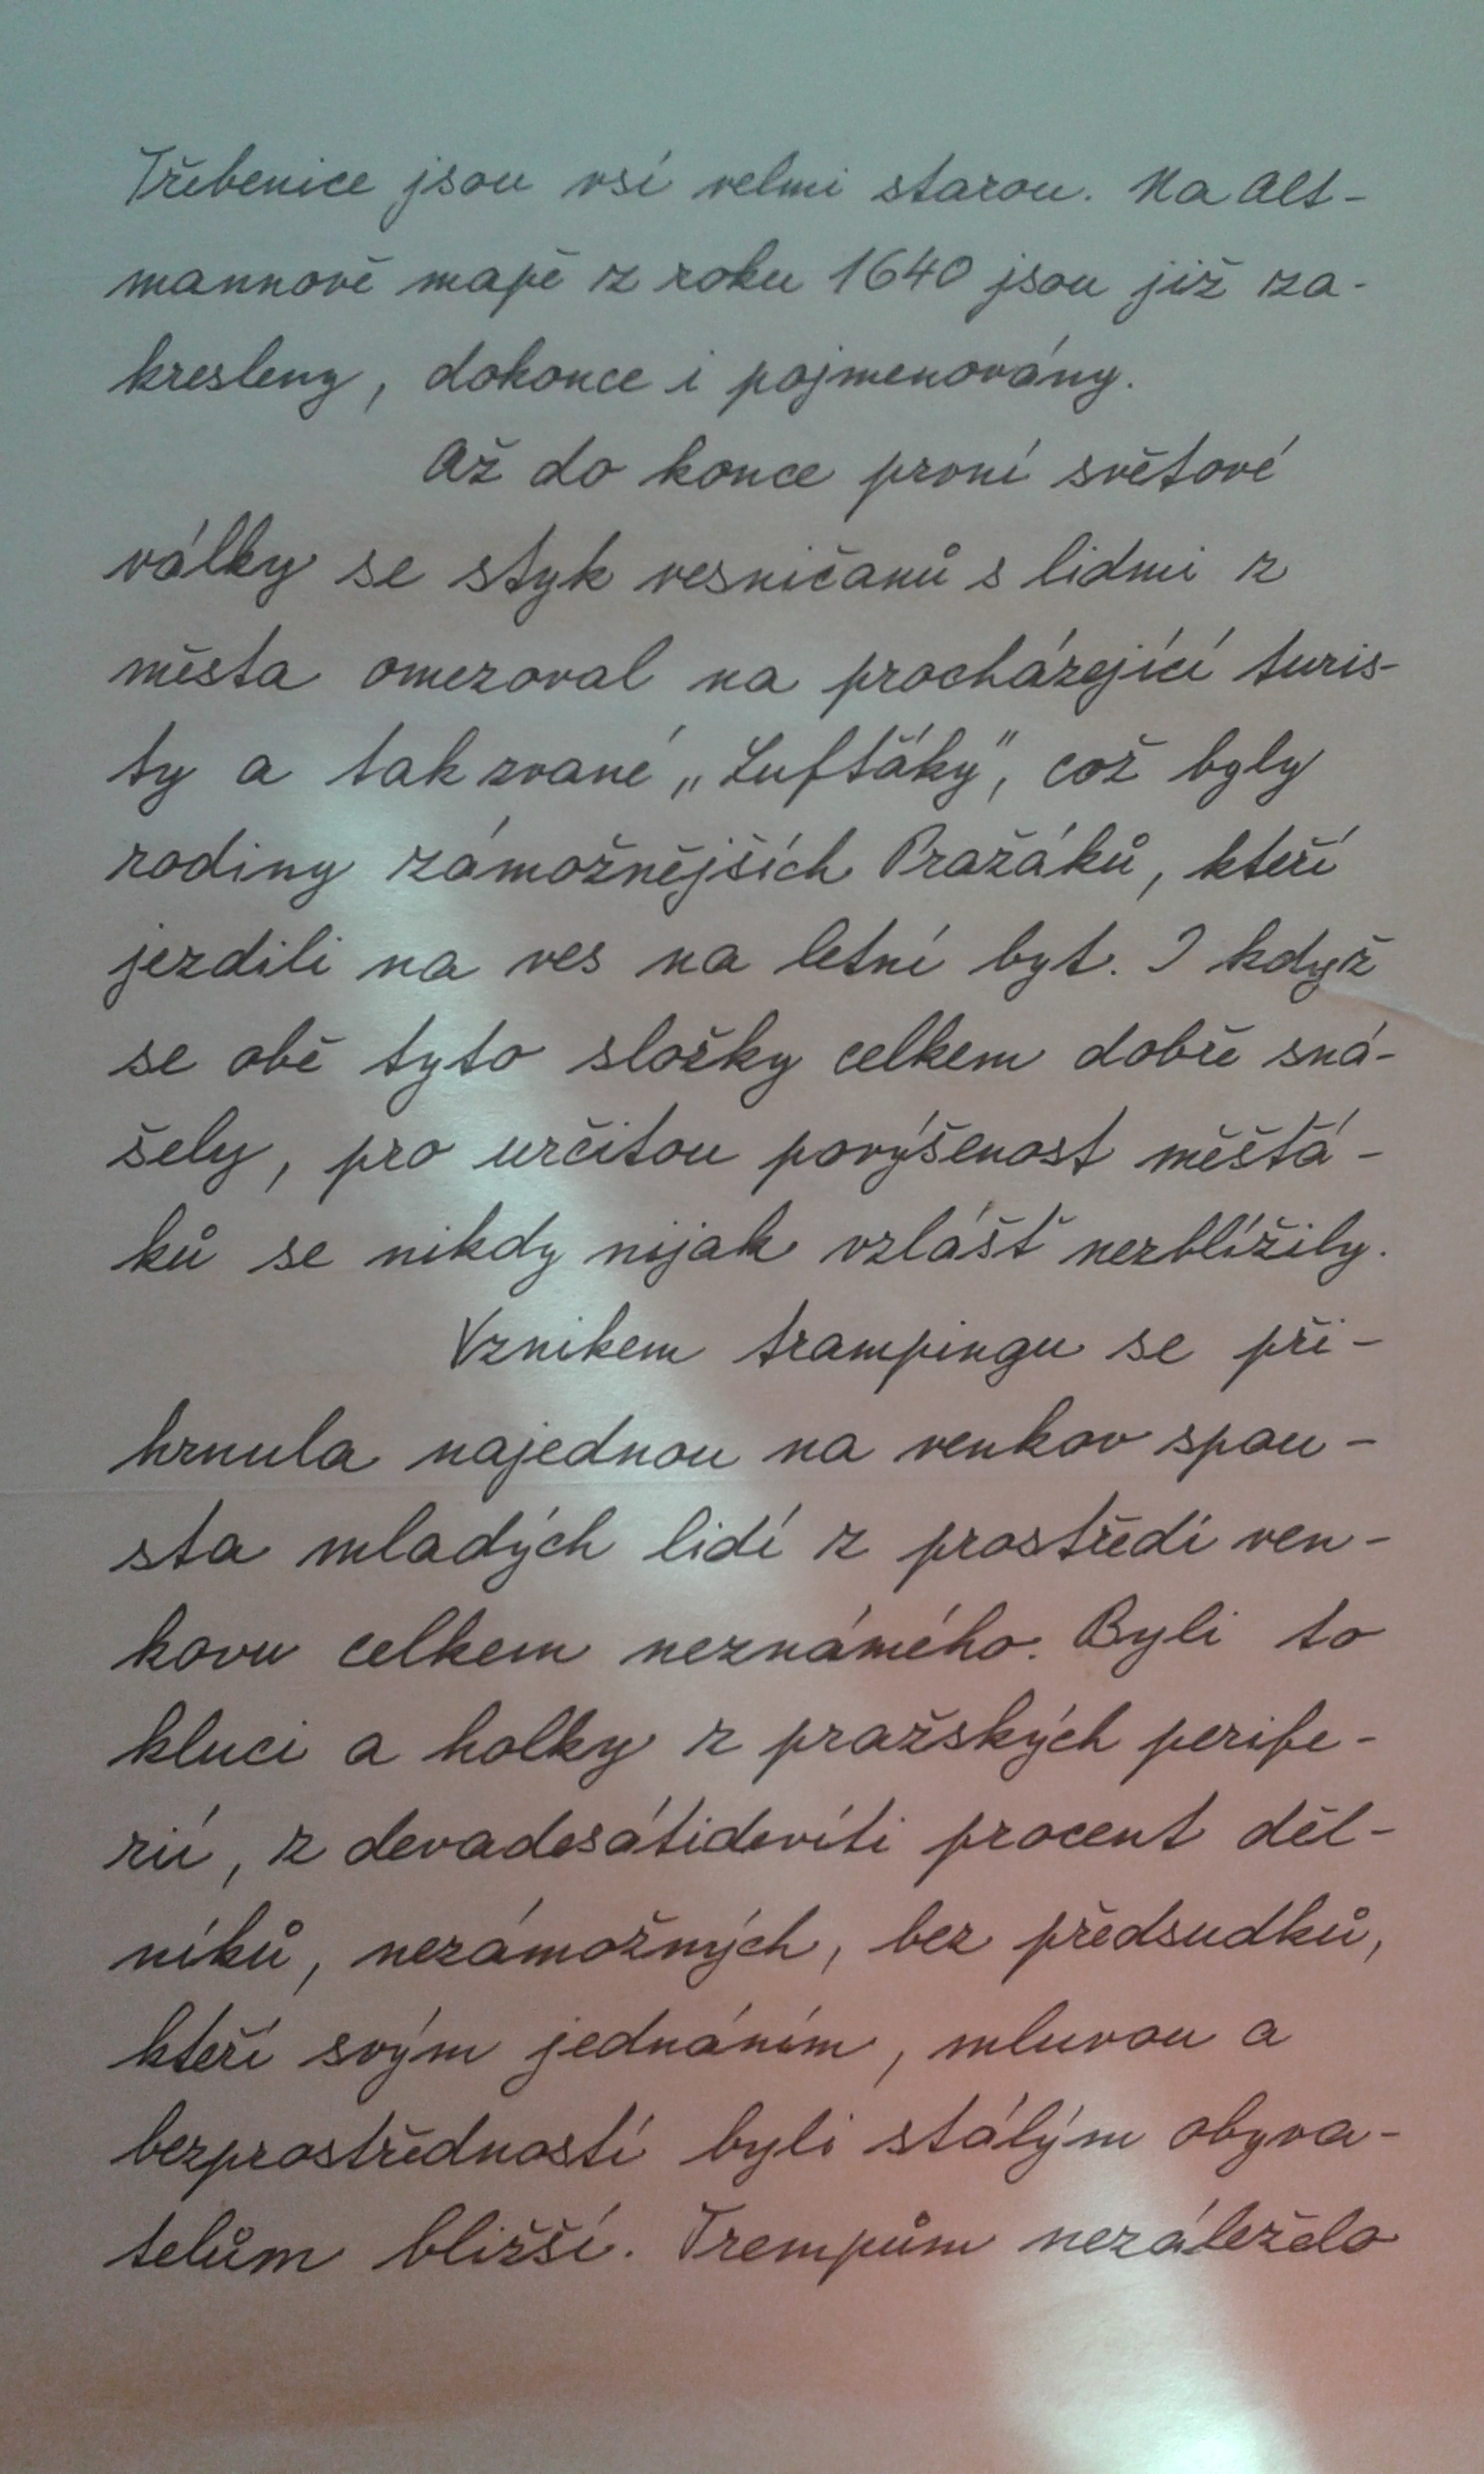 Třebenice jsou vsí velmi starou. Na Alt-
mannově mapě z roku 1640 jsou již za-
kresleny, dokonce i pojmenovány.
Až do konce první světové
války se styk vesničanů s lidmi z
města omezoval na procházející turis-
ty a tak zvané „Lufťáky", což byly
rodiny zámožnějších Pražáků, kteří
jezdili na ves na letní byt. I když
se obě tyto složky celkem dobře sná-
šely, pro určitou povýšenost měšťá-
ků se nikdy nijak vzlášť nezblížily.
Vznikem trampingu se při-
hrnula najednou na venkov spou-
sta mladých lidí z prostředí ven-
kovu celkem neznámého. Byli to
kluci a holky z pražských perife-
rií, z devadesátidevíti procent děl-
níků, nezámožných, bez předsudků,
kteří svým jednáním, mluvou a
bezprostředností byli stálým obyva-
telům bližší. Trempům nezáleželo